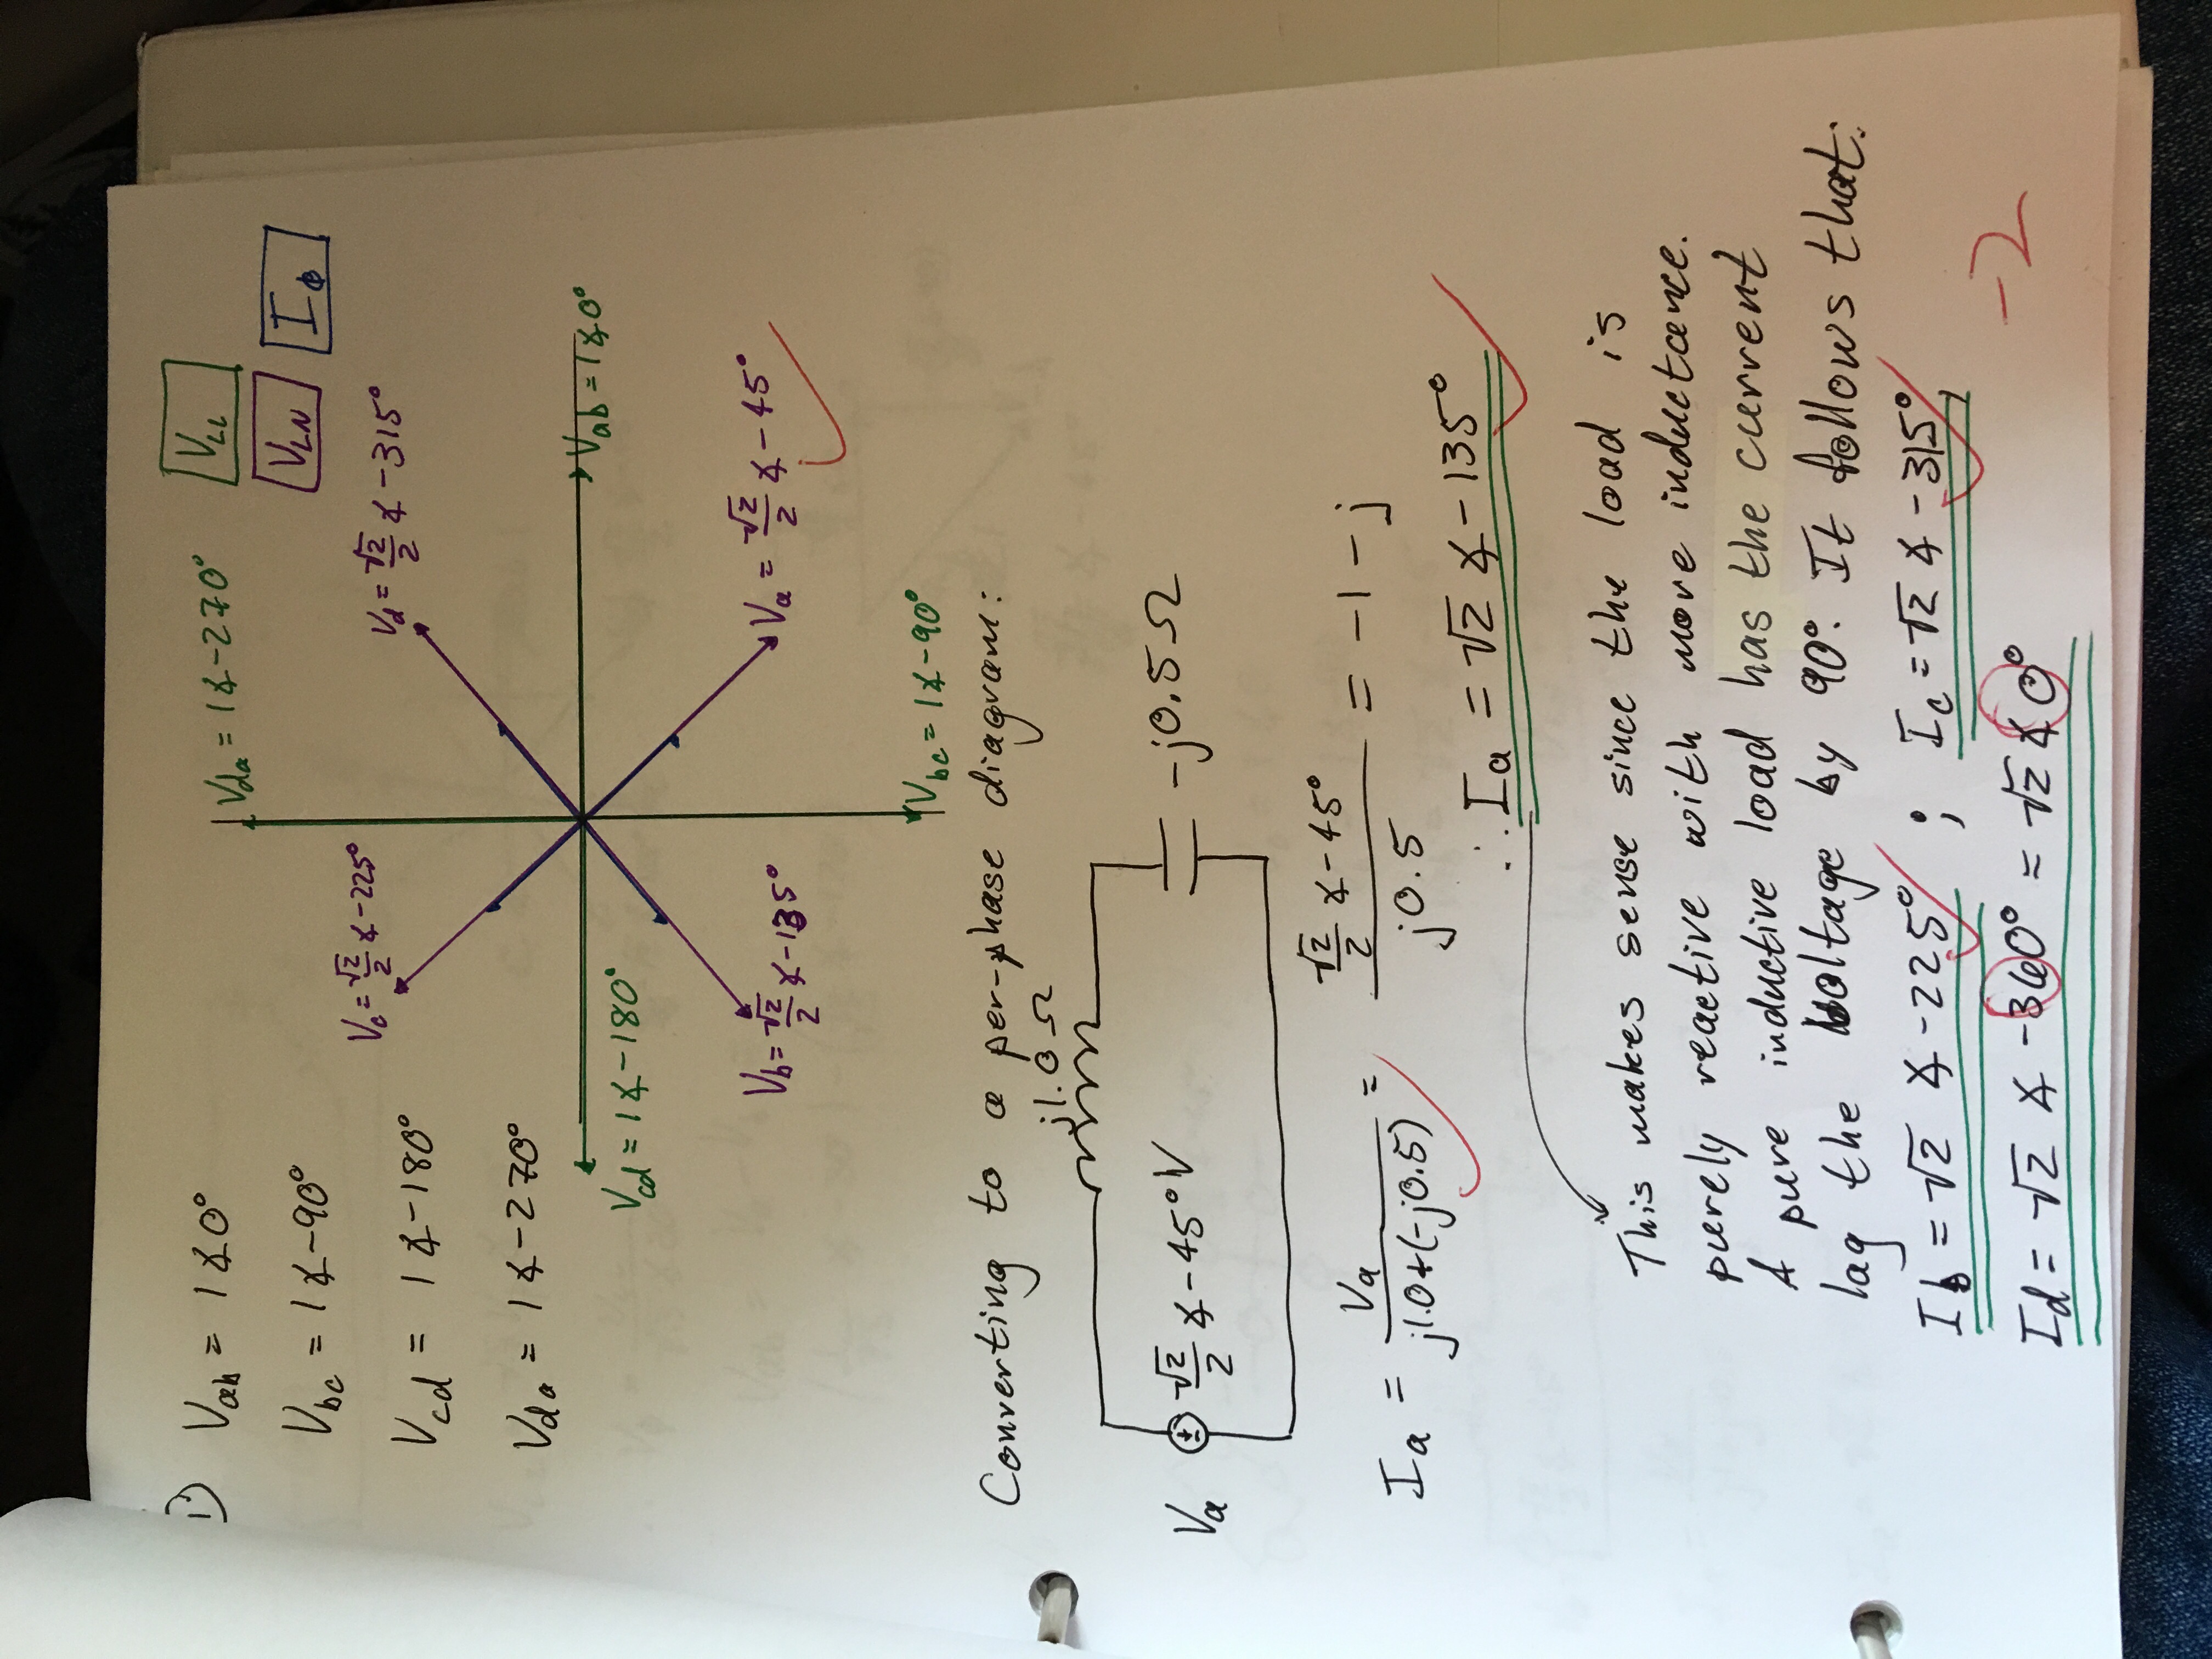 1) Vab = 1∡0°
Vbc = 1∡-90°
Vcd = 1∡-180°
Vda = 1∡-270°
Vda = 1∡-270°
VLL
VLN
Iϕ
Vc = √2/2 ∡-225°
Vd = √2/2 ∡-315°
Vab = 1∡0°
Vcd = 1∡-180°
Vb = √2/2 ∡-135°
Va = √2/2 ∡-45°
Vbc = 1∡-90°
Converting to a per-phase diagram:
j1.0Ω
Va
√2/2 ∡-45° V
-j0.5Ω
Ia = Va / (j1.0+(-j0.5)) = (√2/2 ∡-45°) / j0.5 = -1-j
∴ Ia = √2 ∡-135°
This makes sense since the load is
purely reactive with more inductance.
A pure inductive load has the current
lag the voltage by 90°. It follows that:
Ib = √2 ∡-225° ; Ic = √2 ∡-315° ;
Id = √2 ∡-360° = √2 ∡0°
-2